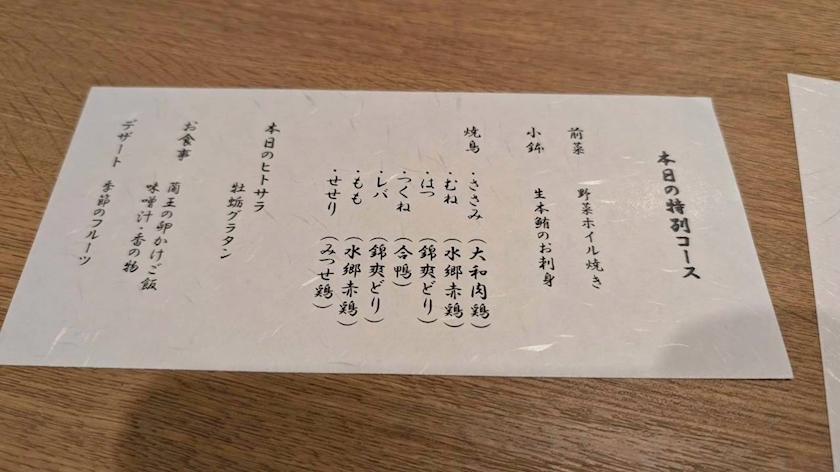 本日の特別コース
前菜
野菜ホイル焼き
小鉢
生本鮪のお刺身
焼鳥
・ささみ（大和肉鶏）
・むね（水郷赤鶏）
・はつ（錦爽どり）
・つくね（合鴨）
・レバ（錦爽どり）
・もも（水郷赤鶏）
・せせり（みつせ鶏）
本日のヒトサラ
牡蛎グラタン
お食事
蘭王の卵かけご飯
味噌汁・香の物
デザート
季節のフルーツ